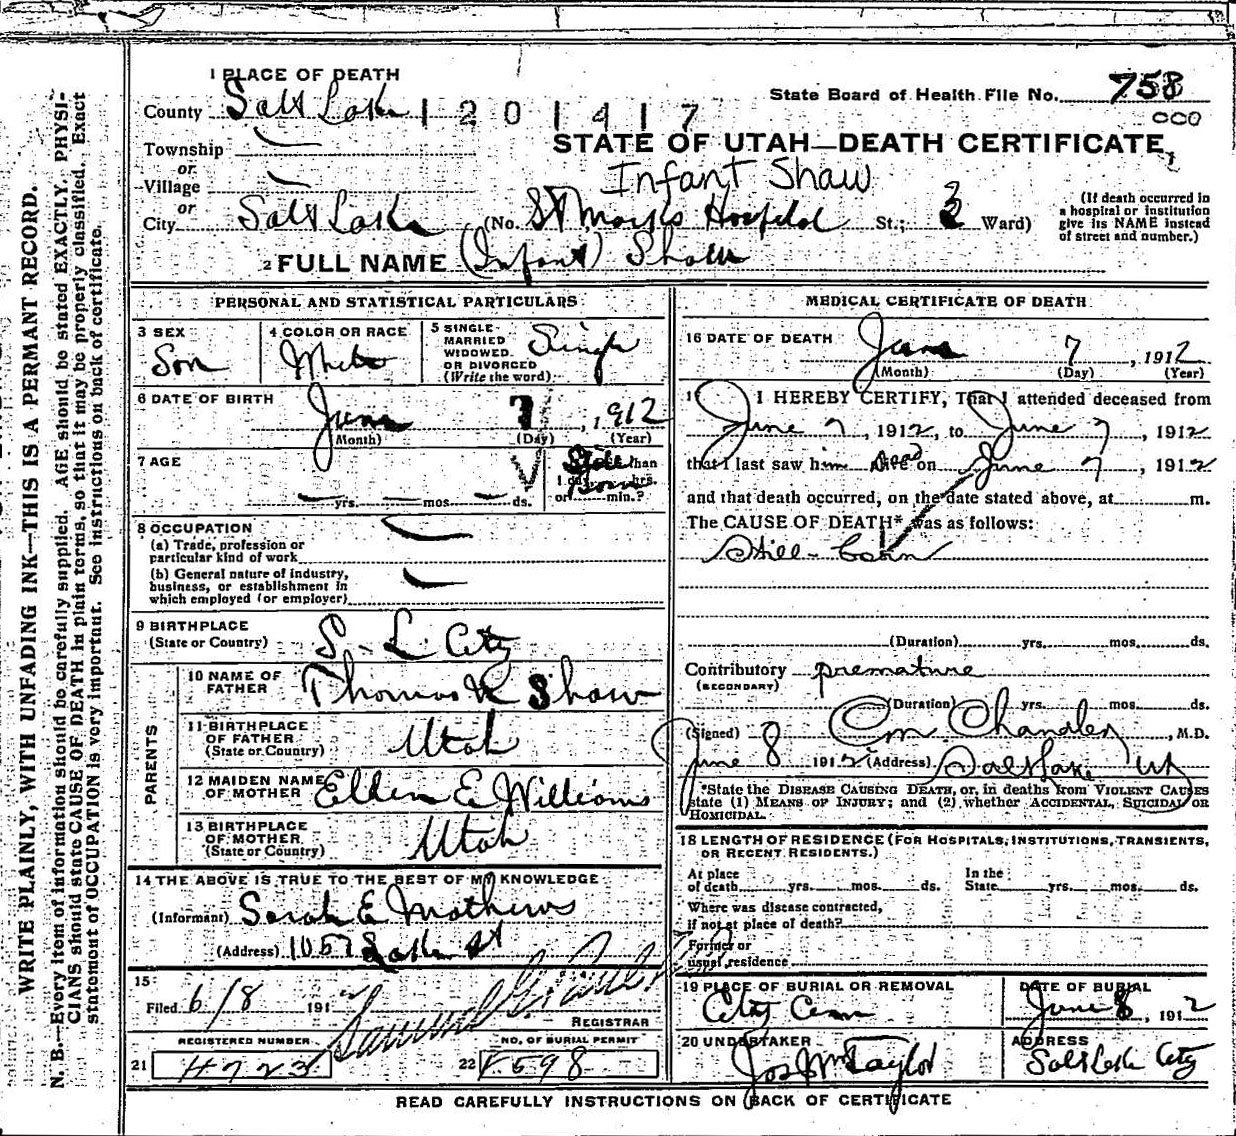 1 PLACE OF DEATH
County Salt Lake 1 2 0 1 4 1 7
State Board of Health File No. 758
000
STATE OF UTAH—DEATH CERTIFICATE
Township
or
Village
Infant Shaw
or
City Salt Lake (No. St Mark's Hospital St.; 3 Ward)
(If death occurred in a hospital or institution give its NAME instead of street and number.)
2 FULL NAME (Infant) Shaw
PERSONAL AND STATISTICAL PARTICULARS
3 SEX Son
4 COLOR OR RACE White
5 SINGLE MARRIED WIDOWED. OR DIVORCED (Write the word) Single
6 DATE OF BIRTH June 7, 1912
(Month) (Day) (Year)
7 AGE
yrs. mos. ds.
Still Born
than
1 day hrs.
or min.?
8 OCCUPATION
(a) Trade, profession or
particular kind of work
(b) General nature of industry,
business, or establishment in
which employed (or employer)
9 BIRTHPLACE
(State or Country) S. L. City
PARENTS
10 NAME OF FATHER Thomas R Shaw
11 BIRTHPLACE OF FATHER (State or Country) Utah
12 MAIDEN NAME OF MOTHER Ellen E Williams
13 BIRTHPLACE OF MOTHER (State or Country) Utah
14 THE ABOVE IS TRUE TO THE BEST OF MY KNOWLEDGE
(Informant) Sarah E Mathews
(Address) 1057 Lake St
15
Filed 6/8 191
Samuel G. Paul
REGISTRAR
REGISTERED NUMBER
21 H723
NO. OF BURIAL PERMIT
22 F598
MEDICAL CERTIFICATE OF DEATH
16 DATE OF DEATH June 7, 1912
(Month) (Day) (Year)
17 I HEREBY CERTIFY, That I attended deceased from
June 7, 1912, to June 7, 1912
that I last saw him Dead on June 7, 1912
and that death occurred, on the date stated above, at m.
The CAUSE OF DEATH* was as follows:
Still-born
(Duration) yrs. mos. ds.
Contributory premature
(SECONDARY)
(Duration) yrs. mos. ds.
(Signed) CM Chandler, M.D.
June 8 1912 (Address) Salt Lake Ut
*State the DISEASE CAUSING DEATH, or, in deaths from VIOLENT CAUSES
state (1) MEANS OF INJURY; and (2) whether ACCIDENTAL, SUICIDAL OR
HOMICIDAL.
18 LENGTH OF RESIDENCE (FOR HOSPITALS, INSTITUTIONS, TRANSIENTS,
OR RECENT RESIDENTS.)
At place of death yrs. mos. ds. In the State yrs. mos. ds.
Where was disease contracted,
if not at place of death?
Former or
usual residence
19 PLACE OF BURIAL OR REMOVAL City Cem
DATE OF BURIAL June 8, 1912
20 UNDERTAKER Jos Wm Taylor
ADDRESS Salt Lake City
READ CAREFULLY INSTRUCTIONS ON BACK OF CERTIFICATE
WRITE PLAINLY, WITH UNFADING INK—THIS IS A PERMANT RECORD.
N. B.—Every item of information should be carefully supplied. AGE should be stated EXACTLY. PHYSI-
CIANS should state CAUSE OF DEATH in plain terms, so that it may be properly classified. Exact
statement of OCCUPATION is very important. See instructions on back of certificate.